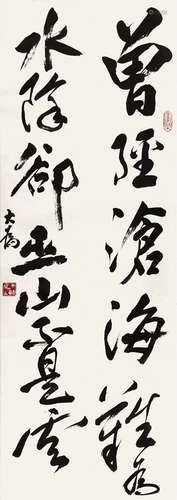 曾经滄海難為
水除卻巫山不是雲
大為